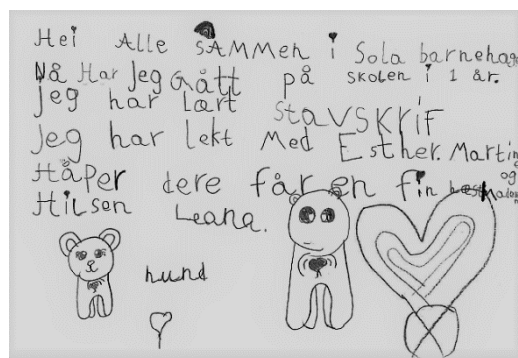 Hei Alle sAMMen i Sola barnehage
Nå Har Jeg Gått på skolen i 1 år.
jeg har lært stavskrif
Jeg har lekt Med Esther. Martin
og
Håper dere får en fin
Hilsen Leana.
hund